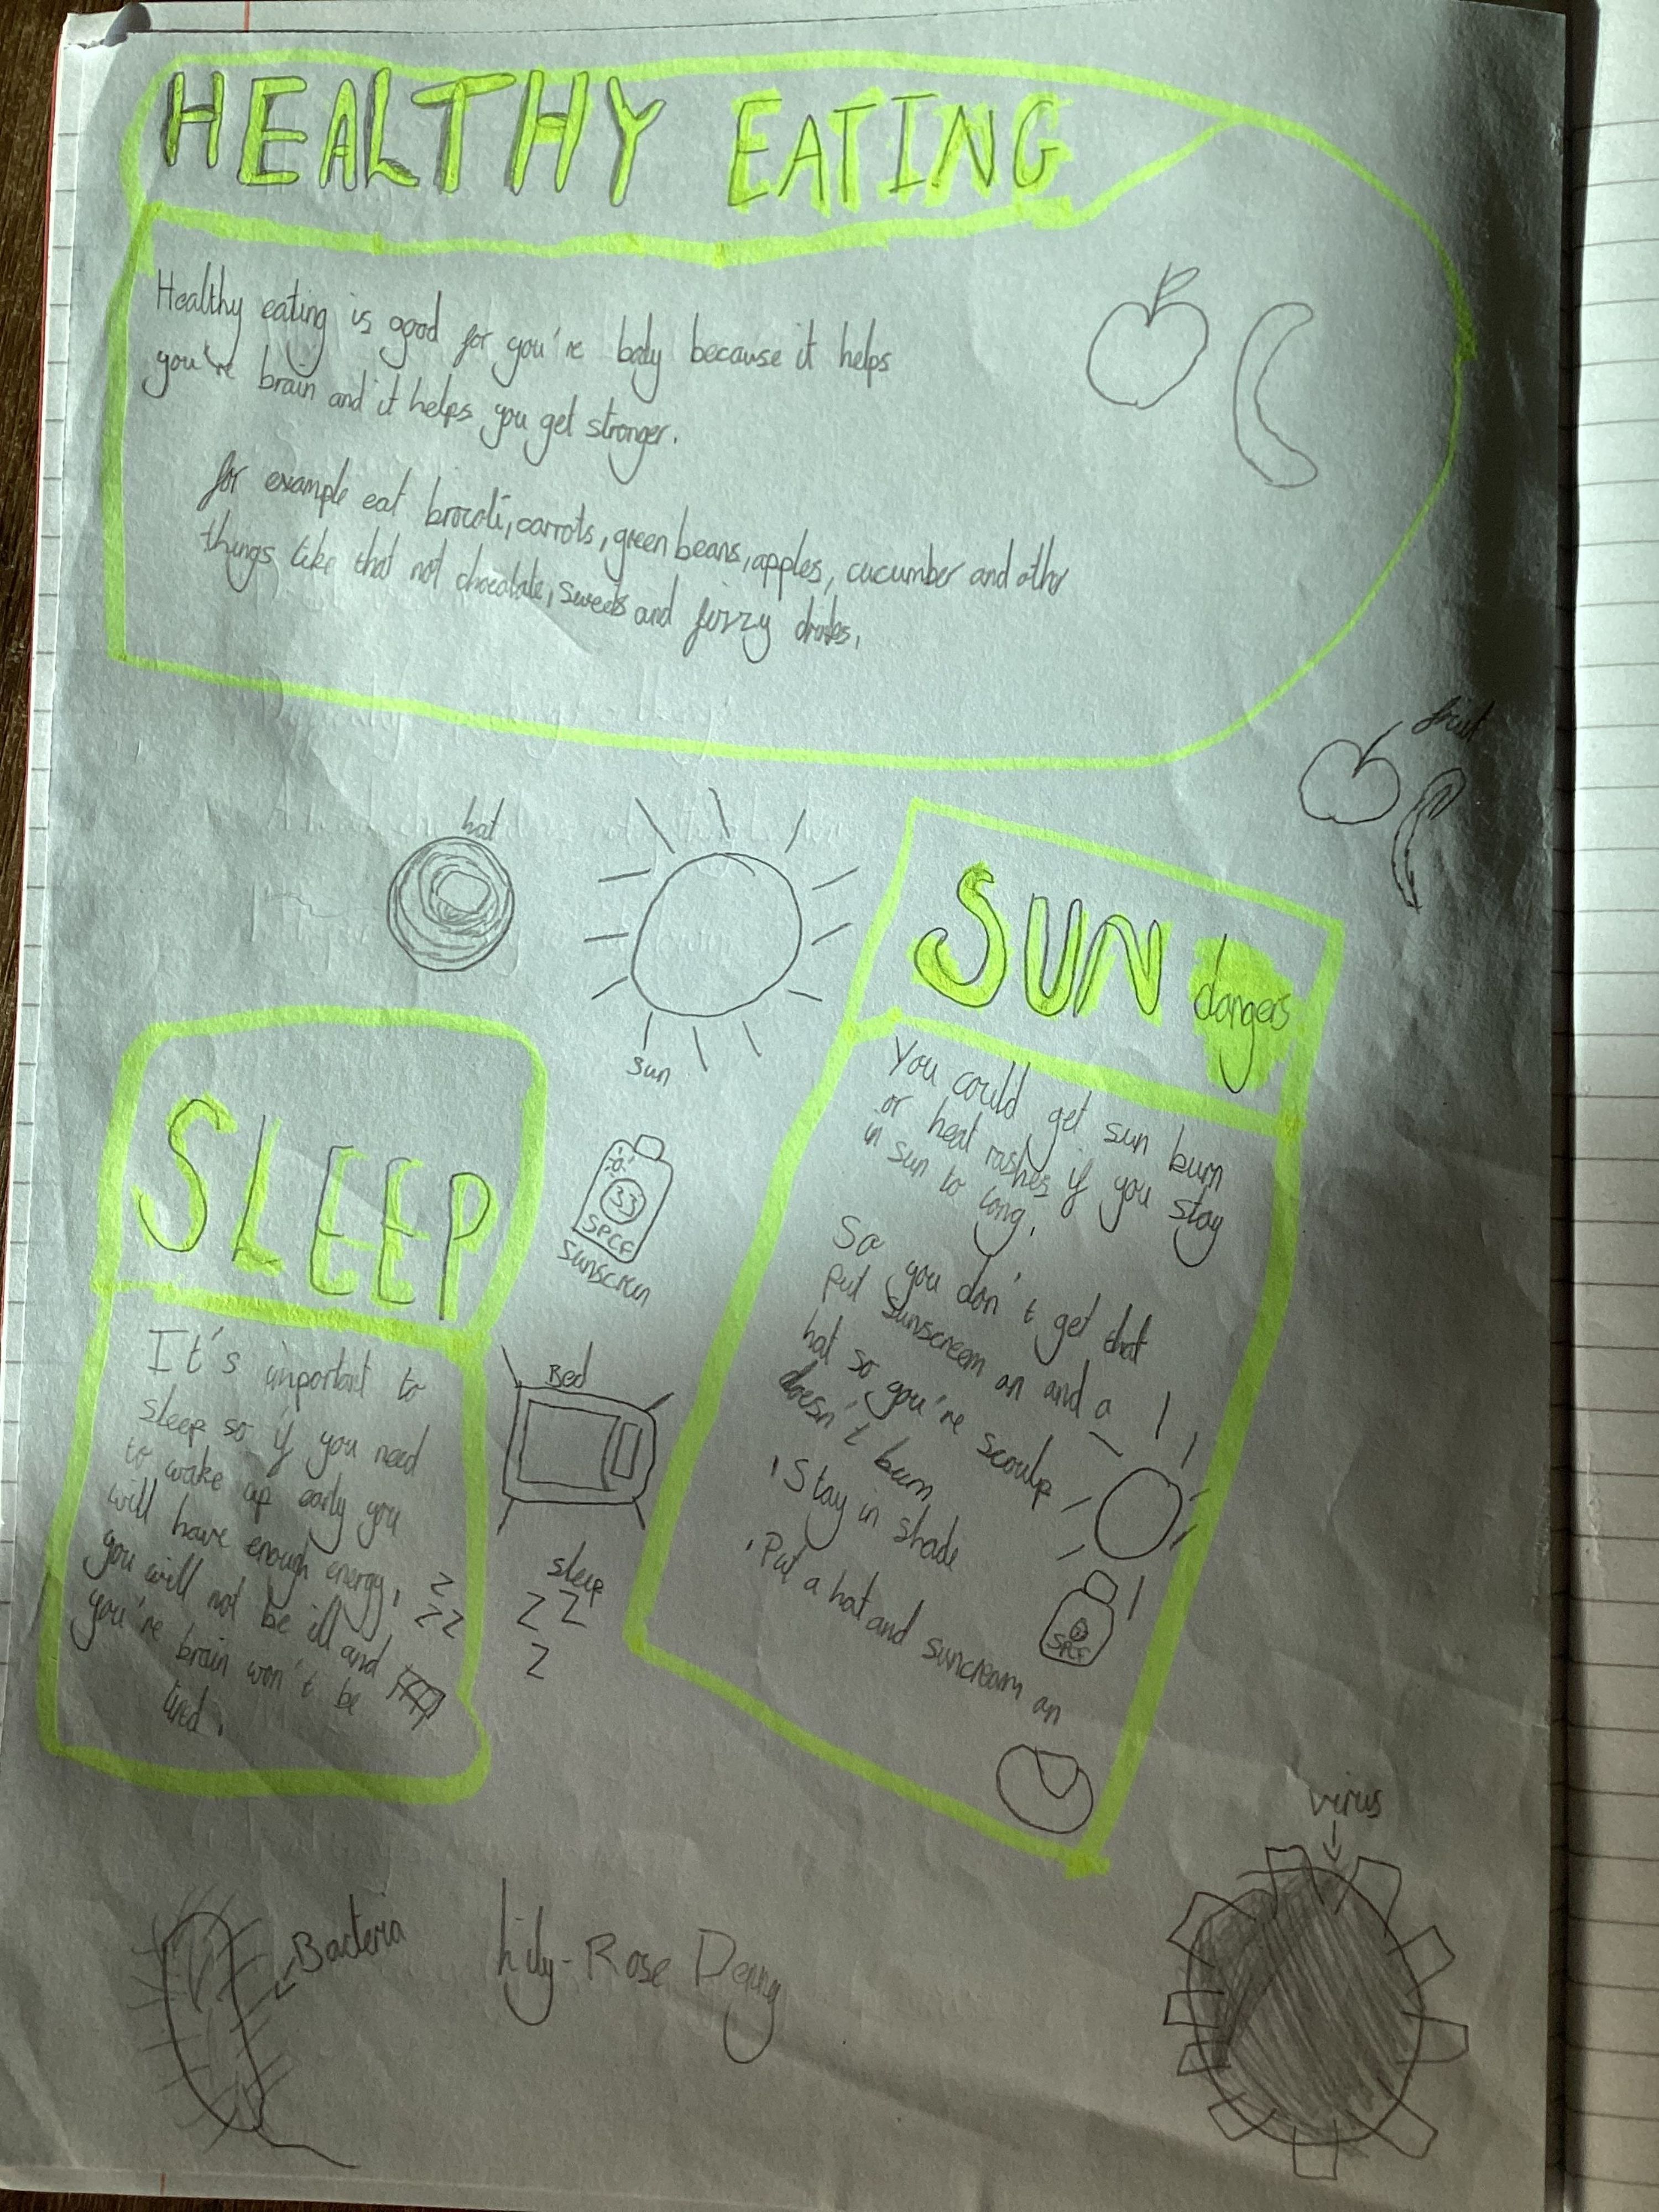 HEALTHY EATING
Healthy eating is good for you're body because it helps
you're brain and it helps you get stronger.
for example eat brocoli, carrots, green beans, apples, cucumber and other
things like that not chocolate, sweets and fizzy drinks.
fruit
hat
sun
SUN dangers
You could get sun burn
or heat rashes if you stay
in sun to long.
So you don't get that
put sunscreem on and a
hat so you're scoulp
doesn't burn
. Stay in shade
. Put a hat and suncream on
SPCF
33
SPCF
Sunscreen
SLEEP
It's important to
sleep so if you need
to wake up early you
will have enough energy,
you will not be ill and
you're brain won't be
tired.
Z
ZZ
Bed
sleep
ZZ
Z
virus
Bacteria
Lily-Rose